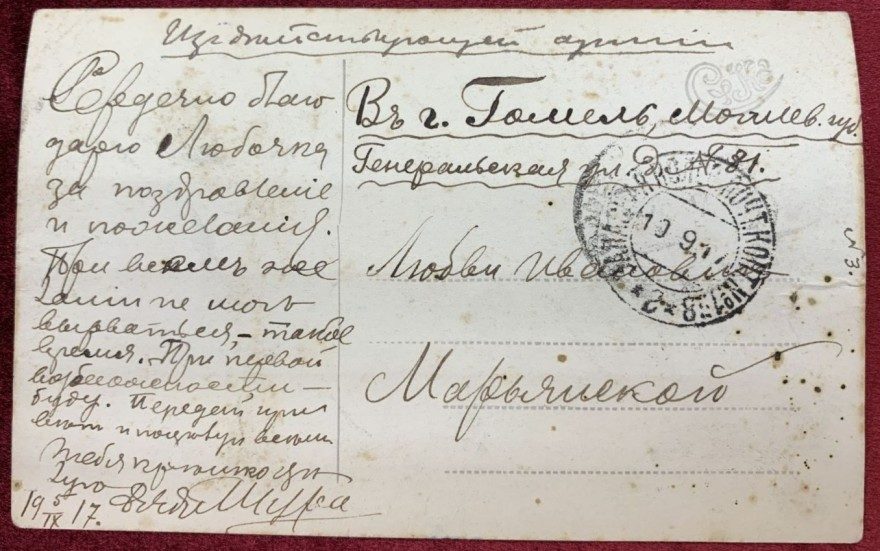 Изъ дѣйствующей арміи
Сердечно благо
дарю Любочка
за поздравленіе
и пожеланія.
При всемъ же
ланіи не могъ
вырваться, – такое
время. При первой
возможности –
буду. Передай при
вет и поцелуй всѣхъ
Тебя крѣпко цѣ
лую Дядя Шура
19 5/IX 17.
Въ г. Гомель, Могилев. губ.
Генеральская ул. 81.
Любви Ивановнѣ
Марьинской
№3.
10 9 17
ПОЧТ. КОНТ. №158